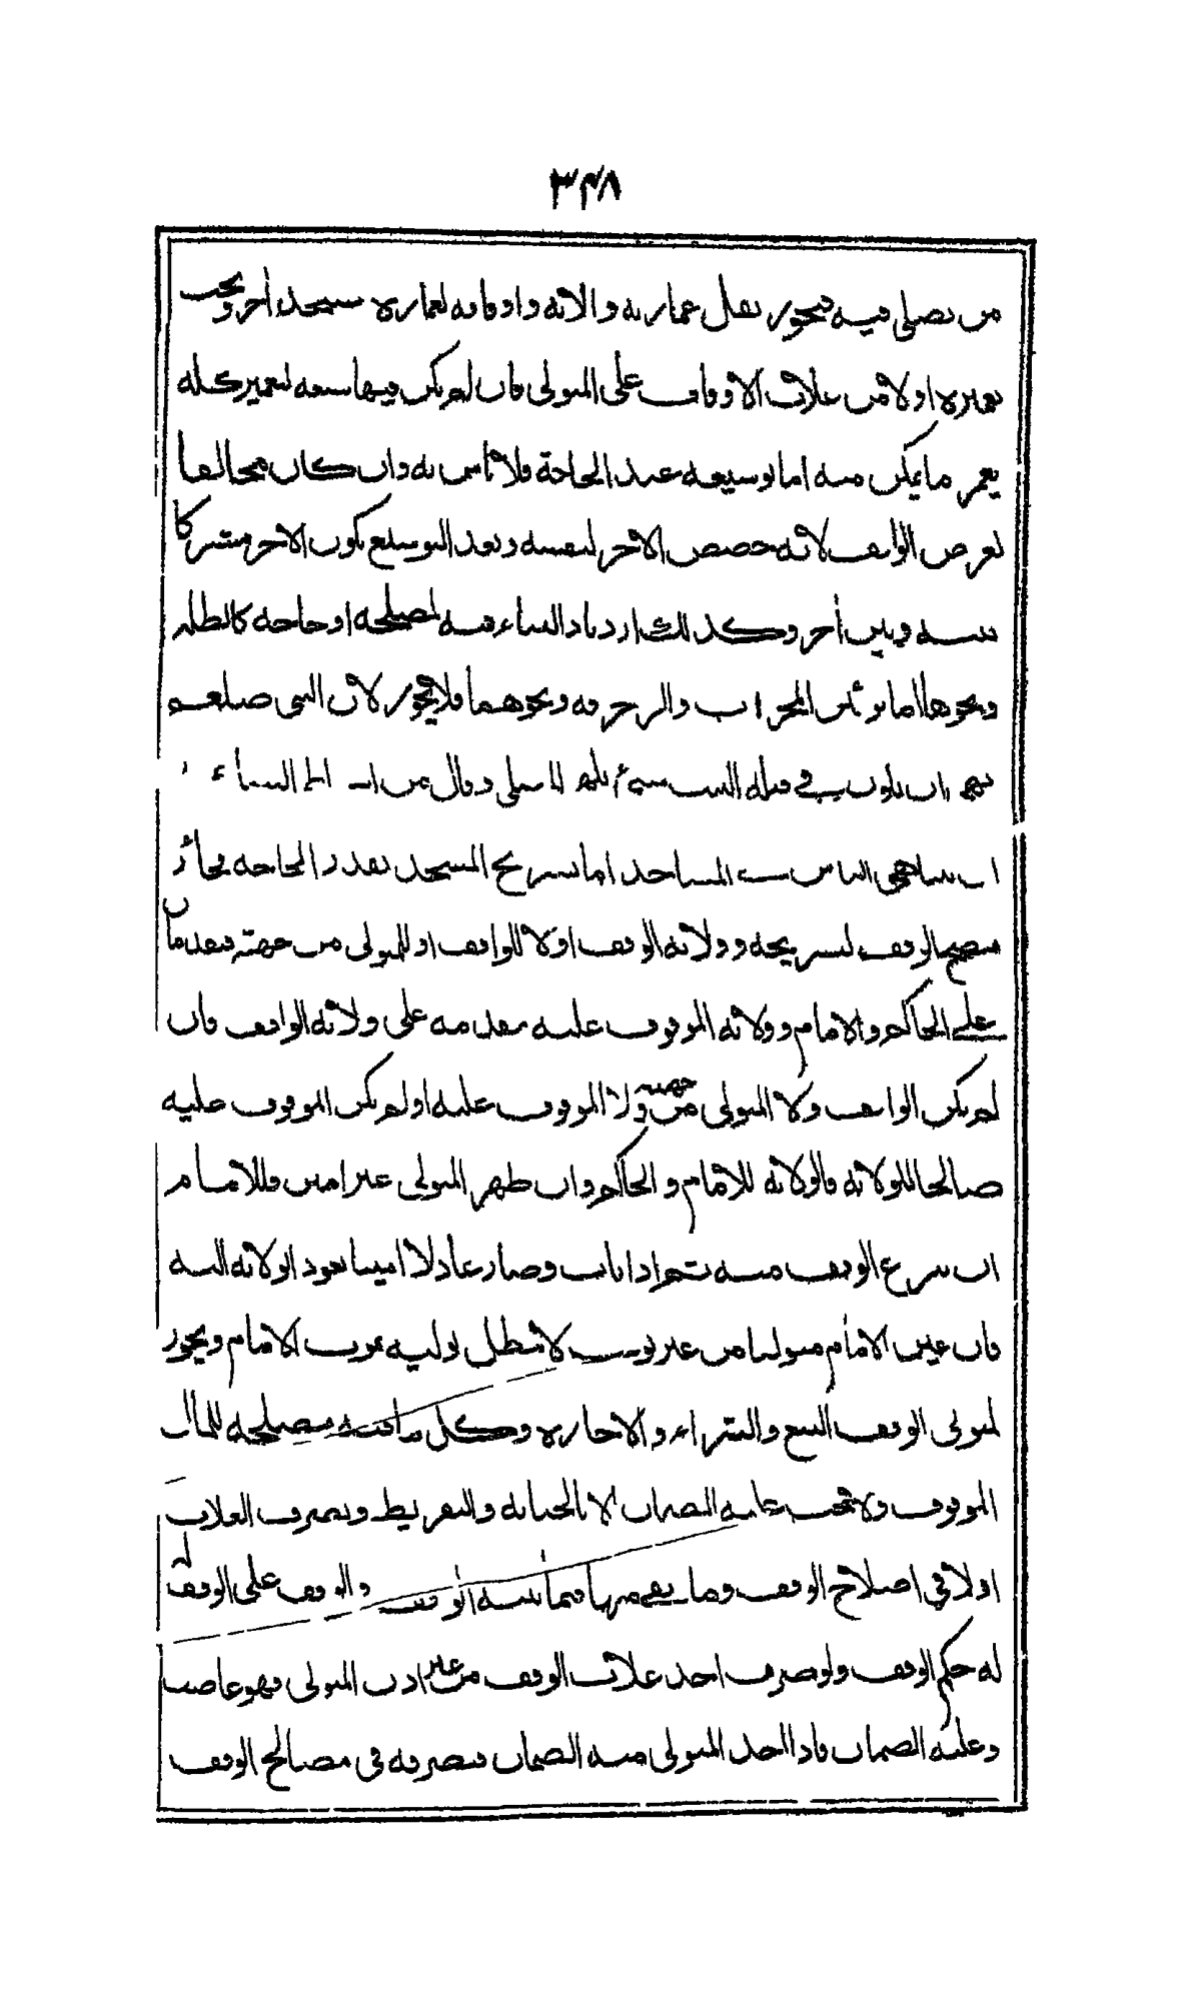 ٣٤٨
من يصلي فيه فيجوز نقل عمارته والاته واوقافه لعمارة مسجد أخر ويجب
تعميره اولا من غلات الاوقاف على المتولى فان لم يكن فيها سعه لتعمير كله
يعمر ما يمكن منه اما توسيعه عند الحاجة فلا بأس به وان كان مخالفا
لغرض الواقف لانه خصص الاجر لنفسه وبعد التوسيع يكون الاجر مشتركا
بينه وبين أخر وكذلك ازدياد البناء فيه لمصلحة او حاجه كالظله
ونحوها اما تزئين المحراب والزخرفه ونحوهما فلا يجوز لان النبى صلعم
نهى ان يكون في قبلة البيت شئ يلهى المصلى وقال من البناء
ان يتباهى الناس في المساجد اما تسريج المسجد بقدر الحاجه فجائز
فيصح الوقف لتسريجه وولاية الوقف اولا للواقف او للمتولى من جهته مقدمان
على الحاكم والامام وولاية الموقوف عليه مقدمه على ولاية الواقف فان
لم يكن الواقف ولا المتولى من جهته ولا الموقوف عليه او لم يكن الموقوف عليه
صالحا للولاية فالولاية للامام والحاكم وان ظهر المتولى غير امين فللامام
ان ينزع الوقف منه ثم اذا تاب وصار عادلا امينا تعود الولاية اليه
فان عين الامام متوليا من غير توقيت لا تبطل توليه بموت الامام ويجوز
لمتولى الوقف البيع والشراء والاجاره وكل ما فيه مصلحه للمال
الموقوف ولا يجب عليه الضمان الا بالخيانه والتفريط ويصرف الغلات
اولا في اصلاح الوقف وما بقي منها فيما بينه الوقف والوقف على الوقف
له حكم الوقف ولو صرف احد غلات الوقف من غير اذن المتولى فهو غاصب
وعليه الضمان فاذا اخذ المتولى منه الضمان فيصرفه في مصالح الوقف